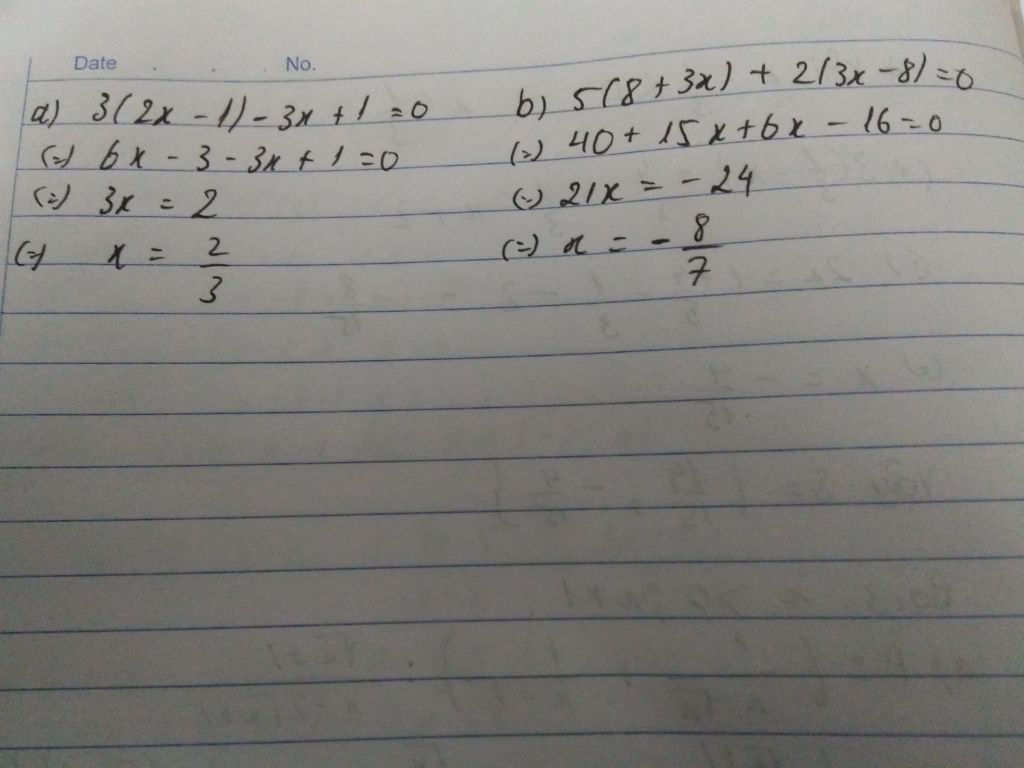 Date No.
a) 3(2x - 1) - 3x + 1 = 0
(=) 6x - 3 - 3x + 1 = 0
(=) 3x = 2
(=) x = 2/3
b) 5(8 + 3x) + 2(3x - 8) = 0
(=) 40 + 15x + 6x - 16 = 0
(=) 21x = - 24
(=) x = - 8/7